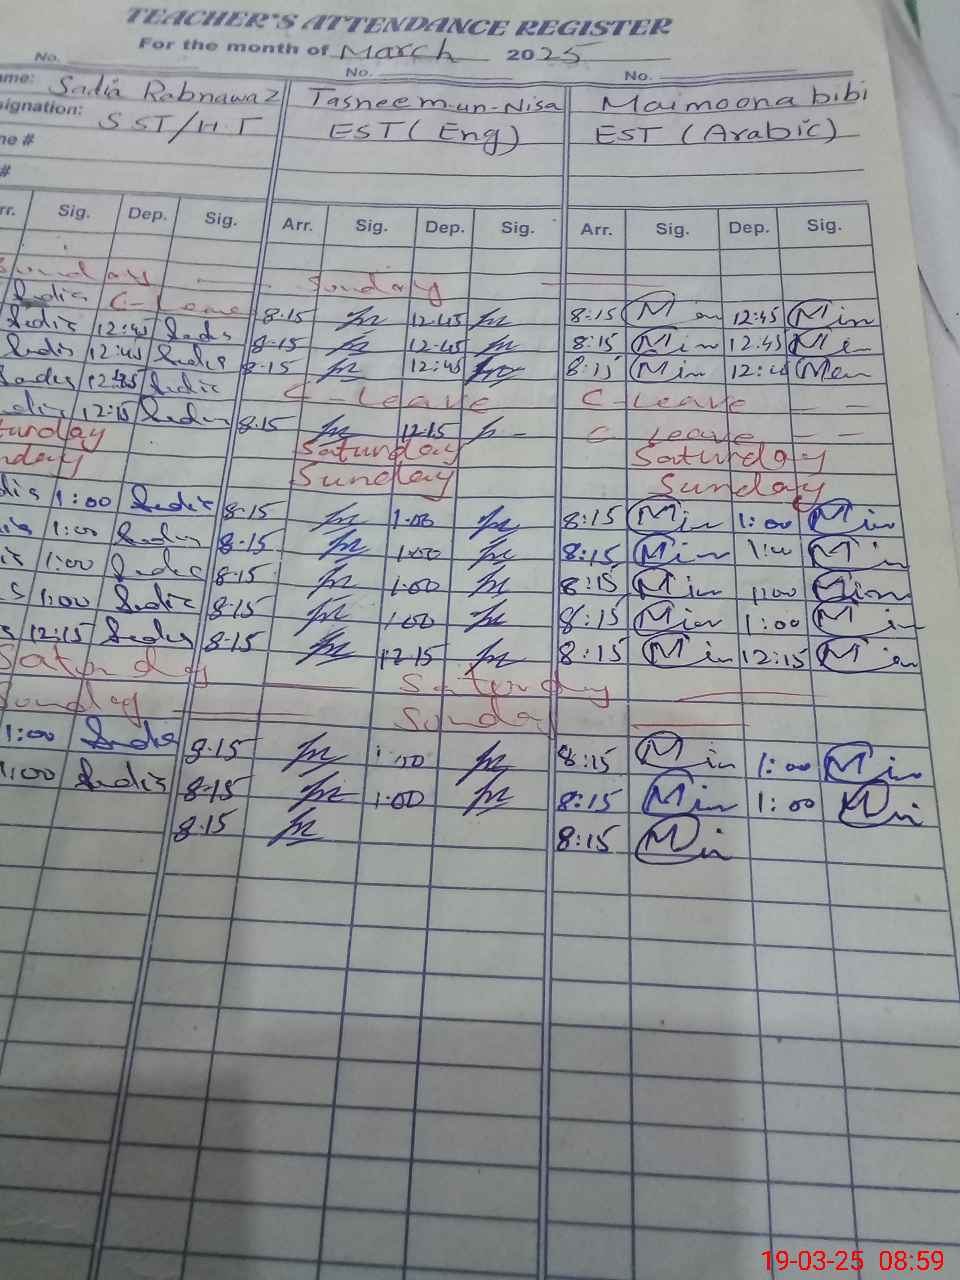 TEACHER'S ATTENDANCE REGISTER
For the month of March 2025
No. No. No.
ame: Sadia Rabnawaz Tasneem-un-Nisa Maimoona bibi
signation: SST/H.T EST (Eng) EST (Arabic)
ne #
#
rr. Sig. Dep. Sig. Arr. Sig. Dep. Sig. Arr. Sig. Dep. Sig.
Sunday Sunday
Sadia C-Leave 8-15 12-45 8:15 Min 12:45 Min
Sadia 12:45 Sadia 8-15 12-45 8:15 Min 12:45 Min
Sadia 12:45 Sadia 8-15 12:45 8:15 Min Min
Sadia 12:45 Sadia C-Leave C-Leave
12:15 Sadia 8-15 12-15 C Leave
turday Saturday Saturday
nday Sunday Sunday
dia 1:00 Sadia 8-15 1-00 8:15 Min 1:00 Min
ia 1:00 Sadia 8-15 1-00 8:15 Min 1:00 Min
1:00 Sadia 8-15 1-00 8:15 Min 1:00 Min
1:00 Sadia 8-15 1-00 8:15 Min 1:00 Min
12:15 Sadia 8-15 12-15 8:15 Min 12:15 Min
Saturday Saturday
Sunday Sunday
1:00 Sadia 8-15 1:00 8:15 Min 1:00 Min
1:00 Sadia 8-15 1-00 8:15 Min 1:00 Min
8-15 8:15 Min
19-03-25 08:59